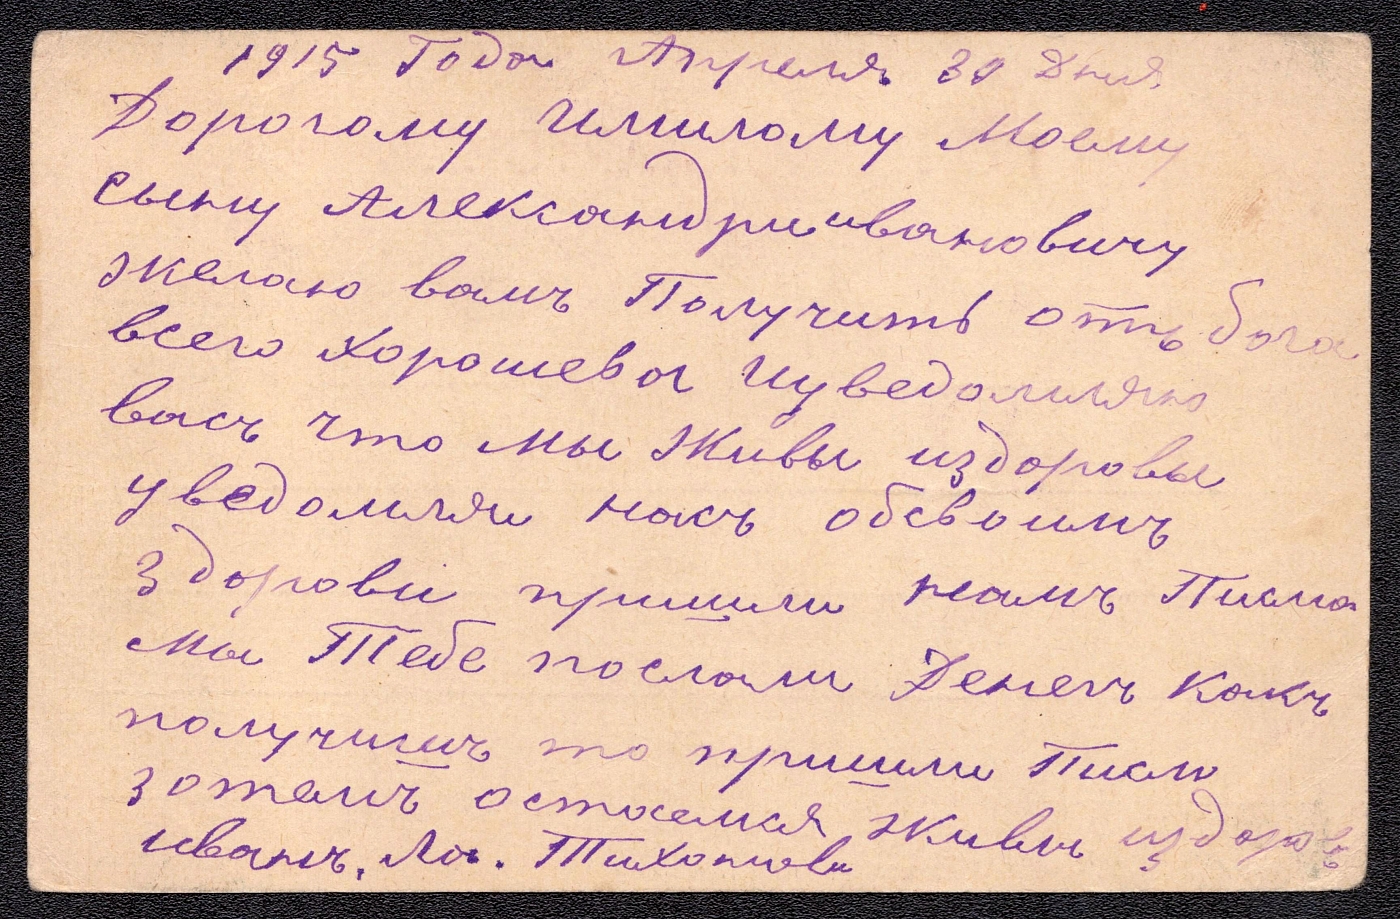 1915 Года Апреля 30 Дния
Дорогому Имилому Моему
сыну Александри ивановичу
желаю вамъ Получить отъ бога
всего хорошева Иуведомляю
васъ что мы Живы издоровы
уведомляи насъ обсвоимъ
здорови пришли намъ Писма
мы Тебе послали Денегъ какъ
получишъ то пришли Писмо
зотемъ остаемся Живы издоровы
иванъ. Ло. Тихоновы